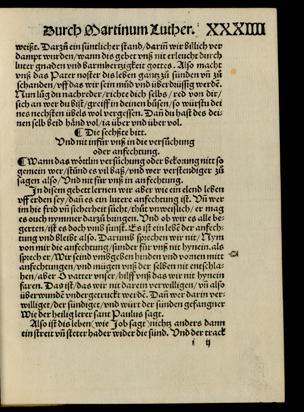 Durch Martinum Luther. XXXIIII
weißt. Darzů ein süntlicher stand/ darin wir billich ver
dampt wurden/ wann dis gebet vns nit erleucht durch
luter gnaden vnd barmhertzigkeit gottes. Also macht
vnß das Pater noster dis leben gantz zů sünden vñ zů
schanden/ vff das wir sein müd vnd überdrüssig werdē.
Nun lůg du nachreder/ richte dich selbs/ red von dir/
sich an wer du bist/ greiff in deinen bůsen/ so würstu dei
nes nechsten übels wol vergessen. Dañ du hast des dei
nen selb beid händ vol/ ia über vnd vol.
¶ Die sechßte bitt.
Vnd nit für vnß in die versüchung
oder anfechtung.
¶ Wann das wörtlin versüchung oder bekorung nitt so
gemein wer/ stünd es vil baß/ vnd wer verstendiger zů
sagen also/ Vnd nit für vnß in anfechtung.
In disem gebett lernen wir aber wie ein elend leben
vff erden sey/ dañ es ein lutere anfechtung ist. Vñ wer
im hie frid vñ sicherheit sücht/ thůt vnweißlich/ er mag
es ouch nymmer darzů bringen. Vnd ob wir es alle be-
gerten/ ist es doch vmb sunst. Es ist ein lebē der anfech-
tung vnd bleibt also. Darumb sprechen wir nit/ Nym
von mir die anfechtung/ sunder für vnß nit hynein. als
sprech er/ Wir seind vmbgeben hinden vnd vornen mitt
anfechtungen/ vnd mügen vnß der selben nit entschla-
hen/ aber O vatter vnser/ hilff vnß das wir nit hynein
faren. Das ist/ das wir nit darein verwilligen/ vñ also
überwundē vnd ergetruckt werdē. Dañ wer darin ver-
williget/ der sündiget/ vnd würt der sünden gefangner
Wie der heilig lerer sant Paulus sagt.
Also ist dis leben/ wie Job sagt/ nichtz anders dann
ein streit vñ steter hader wider die sünd. Vnd der track